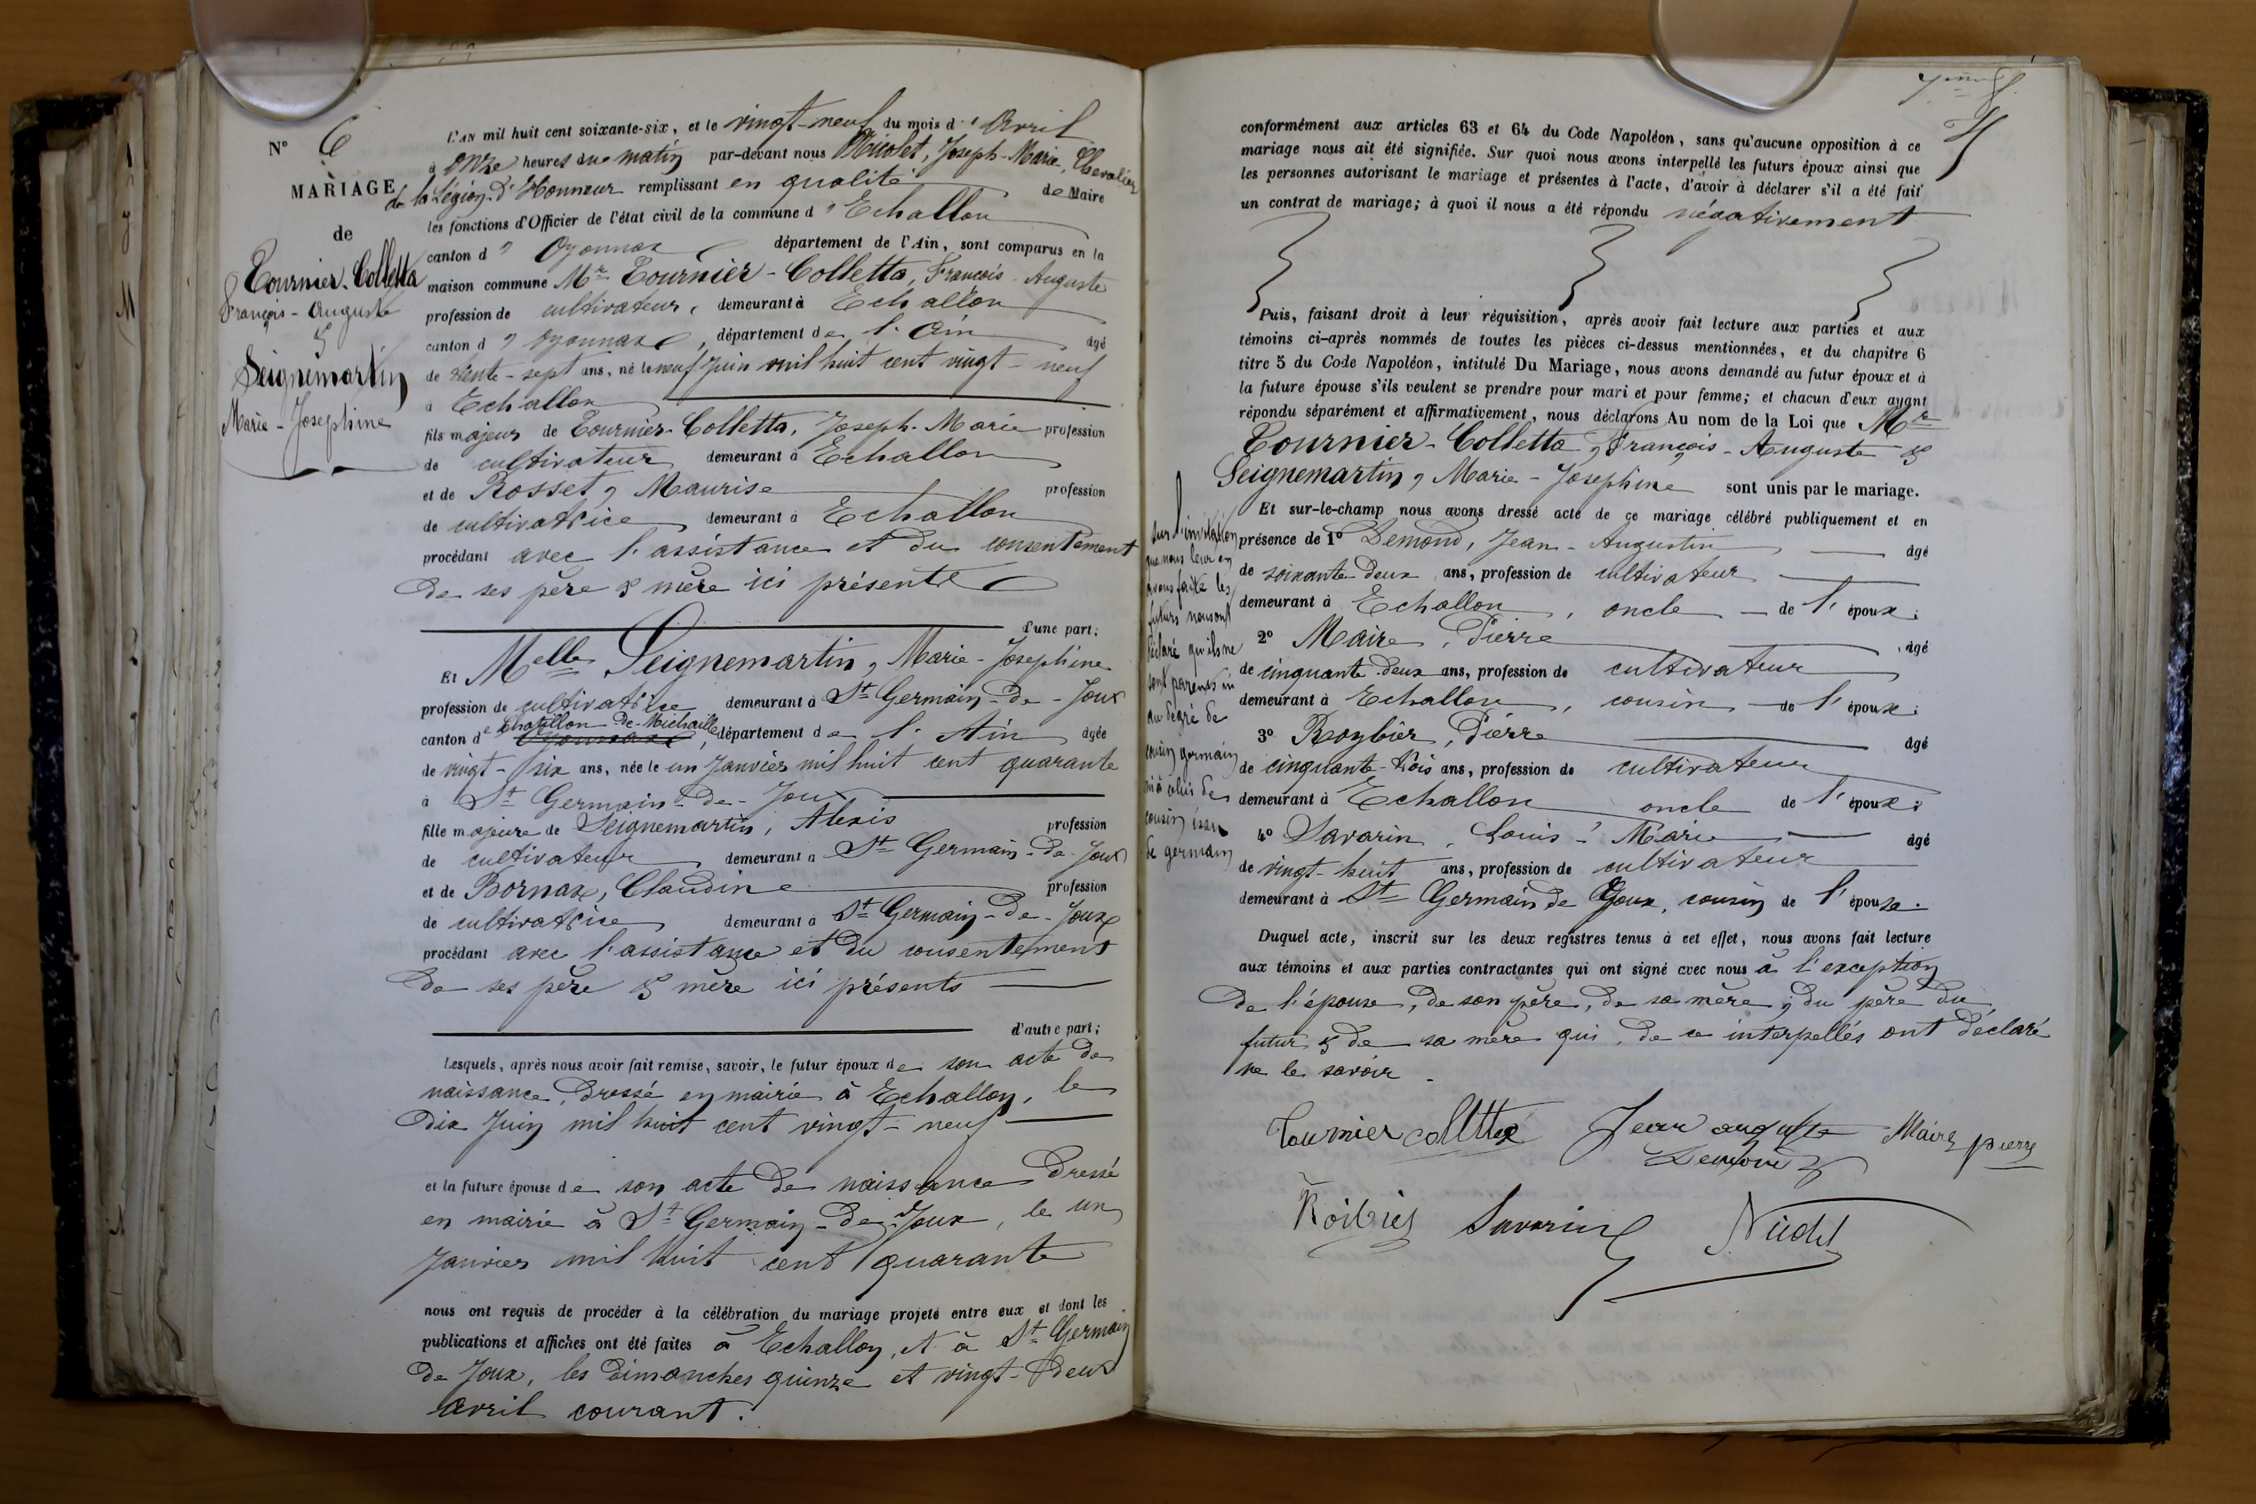 N° 6
MARIAGE
de
Tournier-Colletta
François-Auguste
&
Seignemartin
Marie-Josephine
L'AN mil huit cent soixante-six, et le vingt-neuf du mois d' Avril
à onze heures du matin par-devant nous Nicolet, Joseph-Marie, Chevalier
de la Légion d'Honneur remplissant en qualité de Maire
les fonctions d'Officier de l'état civil de la commune d'Echallon
canton d'Oyonnax département de l'Ain, sont comparus en la
maison commune Mr Tournier-Colletta, François-Auguste
profession de cultivateur, demeurant à Echallon
canton d'oyonnax, département de l'Ain âgé
de trente-sept ans, né le neuf Juin mil huit cent vingt-neuf
à Echallon
fils majeur de Tournier-Colletta, Joseph-Marie profession
de cultivateur demeurant à Echallon
et de Rosset, Maurise profession
de cultivatrice demeurant à Echallon
procédant avec l'assistance et du consentement
de ses père & mère ici présents
d'une part;
Et Melle Seignemartin, Marie-Josephine
profession de cultivatrice demeurant à St Germain-de-Joux
canton de Chatillon-de-Michaille Oyonnax, département de l'Ain âgée
de vingt-six ans, née le un Janvier mil huit cent quarante
à St Germain-de-Joux
fille majeure de Seignemartin, Alexis profession
de cultivateur demeurant à St Germain-de-Joux
et de Bornax, Claudine profession
de cultivatrice demeurant à St Germain-de-Joux
procédant avec l'assistance et du consentement
de ses père & mère ici présents
d'autre part;
Lesquels, après nous avoir fait remise, savoir, le futur époux de son acte de
naissance, dressé en mairie à Echallon, le
dix Juin mil huit cent vingt-neuf
et la future épouse de son acte de naissance dressé
en mairie à St Germain-de-Joux, le un
Janvier mil huit cent quarante
nous ont requis de procéder à la célébration du mariage projeté entre eux et dont les
publications et affiches ont été faites à Echallon, et à St Germain
de Joux, les dimanches quinze et vingt-deux
avril courant.
conformément aux articles 63 et 64 du Code Napoléon, sans qu'aucune opposition à ce
mariage nous ait été signifiée. Sur quoi nous avons interpellé les futurs époux ainsi que
les personnes autorisant le mariage et présentes à l'acte, d'avoir à déclarer s'il a été fait
un contrat de mariage; à quoi il nous a été répondu négativement
Puis, faisant droit à leur réquisition, après avoir fait lecture aux parties et aux
témoins ci-après nommés de toutes les pièces ci-dessus mentionnées, et du chapitre 6
titre 5 du Code Napoléon, intitulé Du Mariage, nous avons demandé au futur époux et à
la future épouse s'ils veulent se prendre pour mari et pour femme; et chacun d'eux ayant
répondu séparément et affirmativement, nous déclarons Au nom de la Loi que Mr
Tournier-Colletta, François-Auguste &
Seignemartin, Marie-Josephine sont unis par le mariage.
Et sur-le-champ nous avons dressé acte de ce mariage célébré publiquement et en
présence de 1° Demond, Jean-Augustin âgé
de soixante-deux ans, profession de cultivateur
demeurant à Echallon, oncle de l'époux;
2° Maire, Pierre âgé
de cinquante-deux ans, profession de cultivateur
demeurant à Echallon, cousin de l'époux;
3° Roybier, Pierre âgé
de cinquante-trois ans, profession de cultivateur
demeurant à Echallon oncle de l'époux;
4° Savarin, Louis-Marie âgé
de vingt-huit ans, profession de cultivateur
demeurant à St Germain de Joux, cousin de l'épouse.
Duquel acte, inscrit sur les deux registres tenus à cet effet, nous avons fait lecture
aux témoins et aux parties contractantes qui ont signé avec nous à l'exception
de l'épouse, de son père, de sa mère, du père du
futur & de sa mère qui, de ce interpellés ont déclaré
ne le savoir.
sur l'invitation
que nous leur en
avons faite les
futurs nous ont
déclaré qu'ils ne
sont parents ni
au degré de
cousin germain
ni à celui de
cousin issu
de germain
Tournier colletta Jean auguste Maire pierre
Demond
Roibier Savarin Nicolet